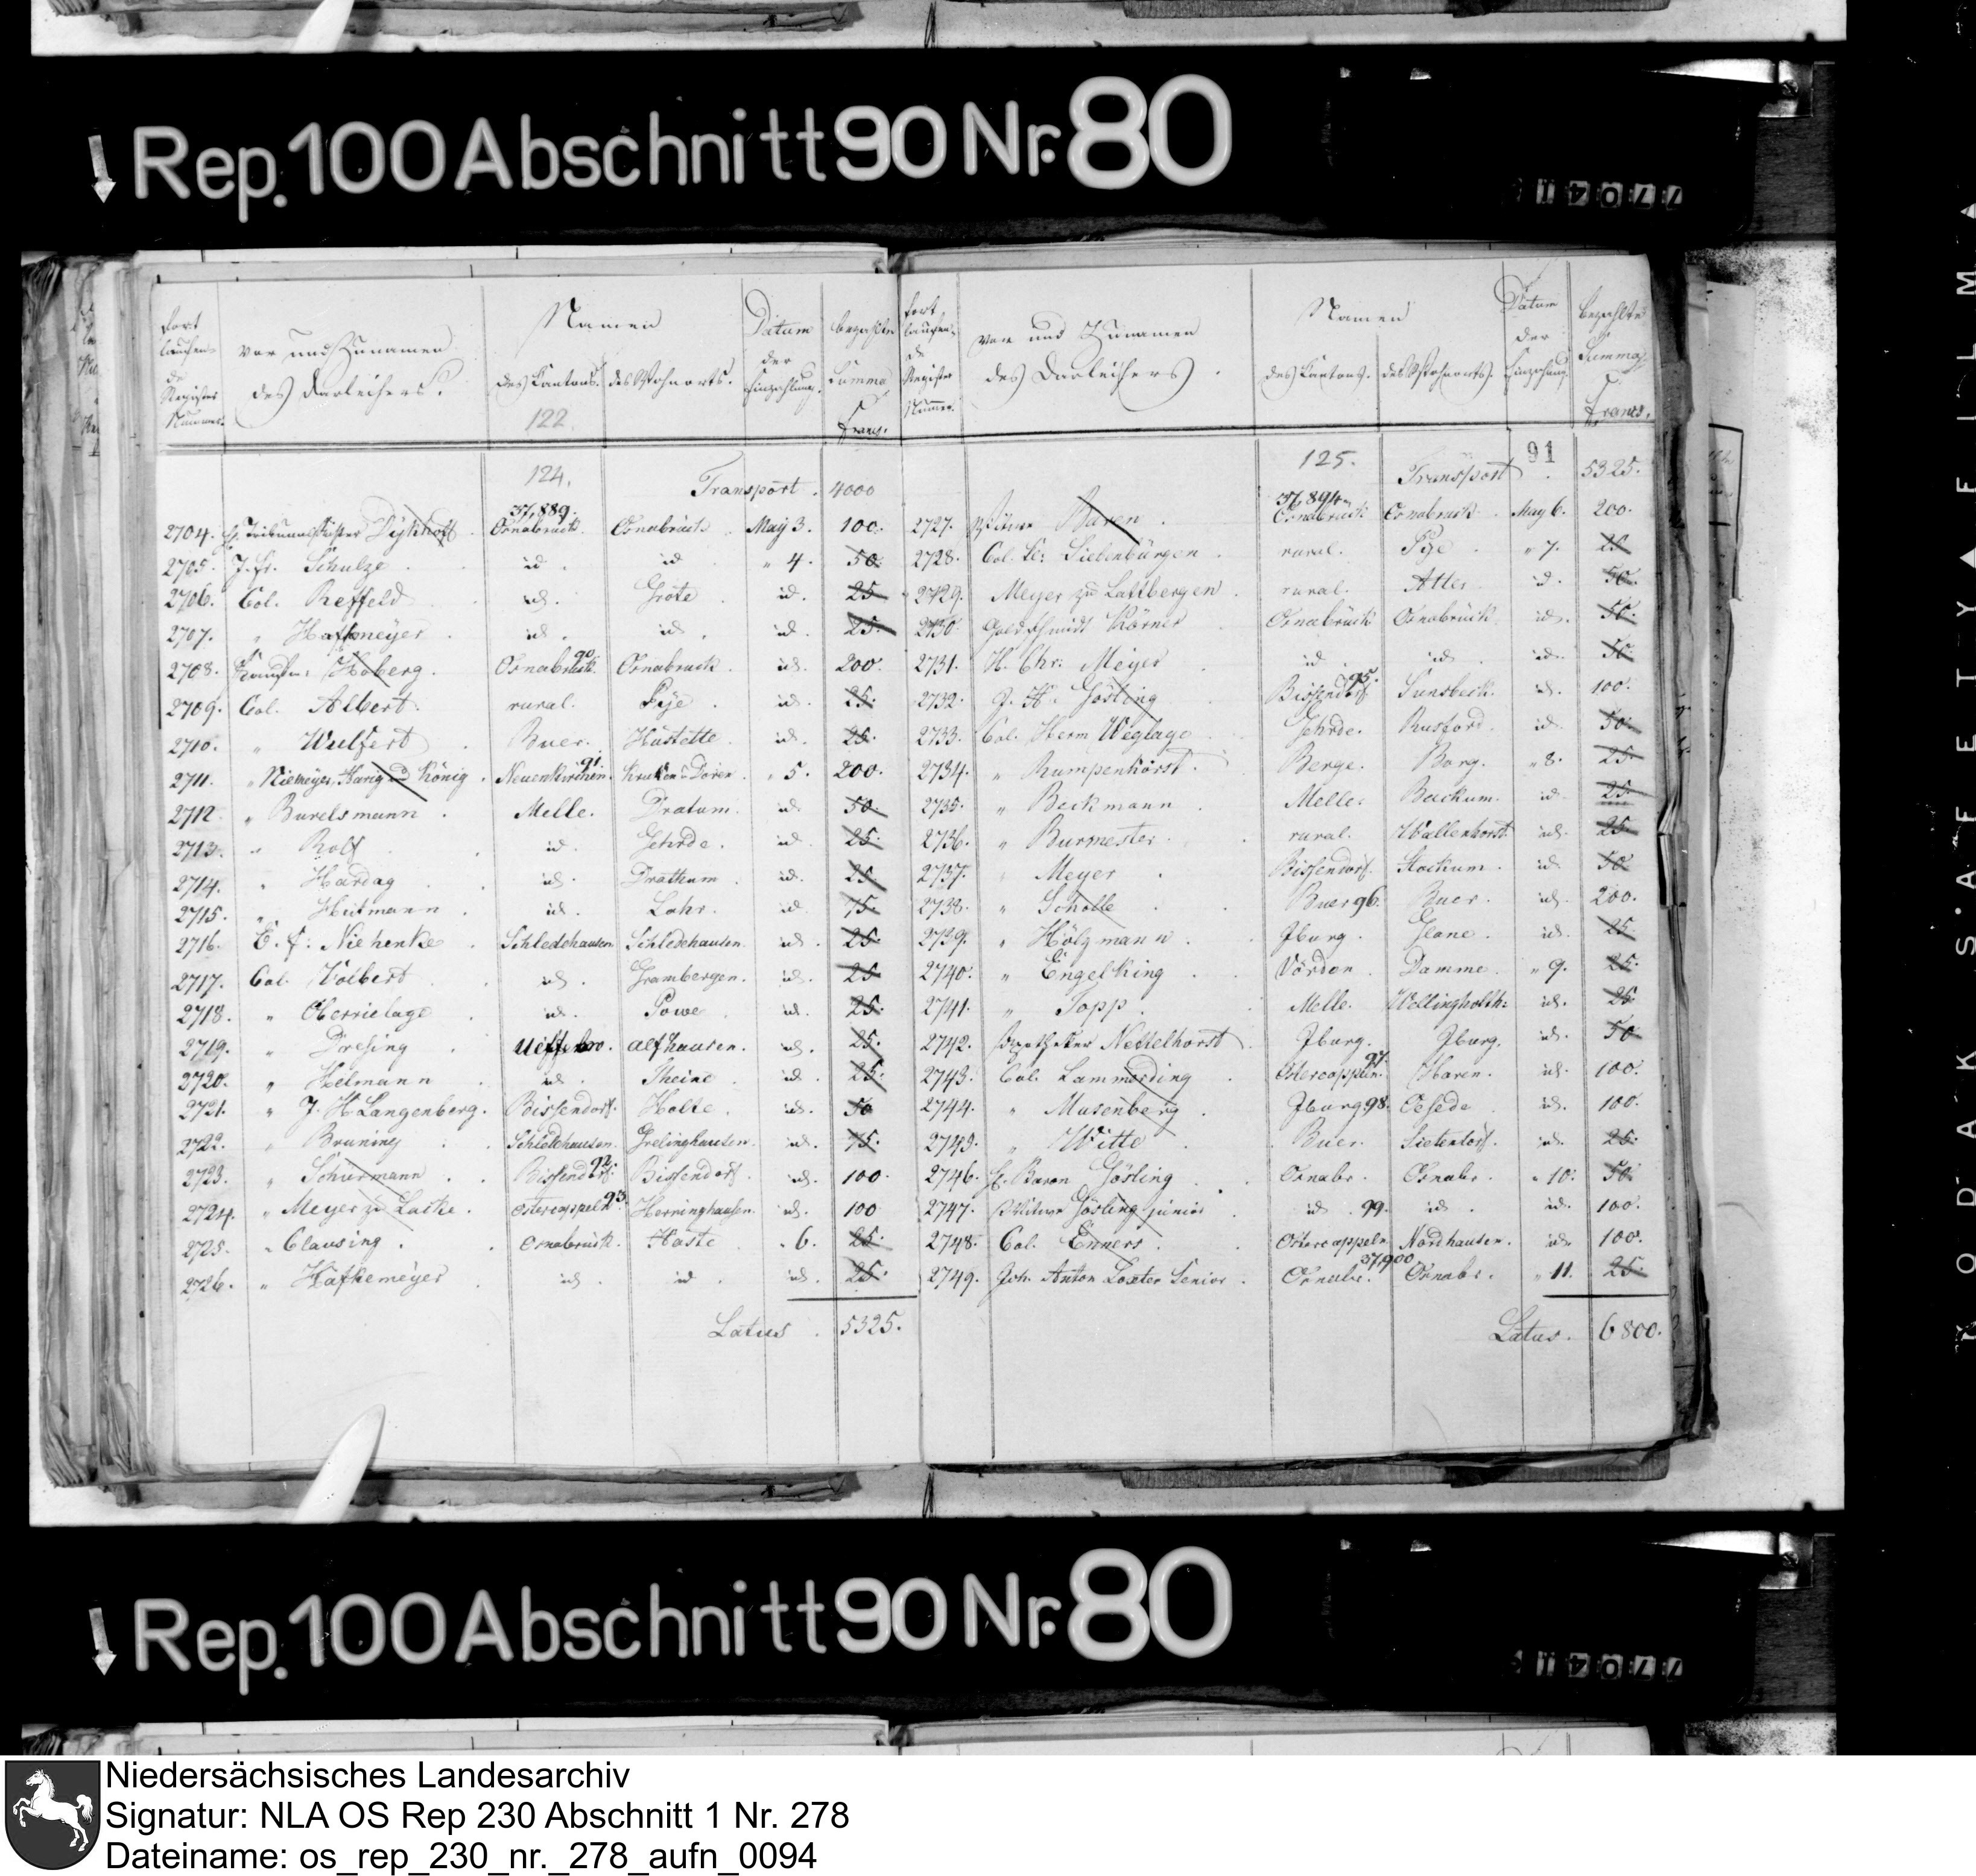 Rep. 100 Abschnitt 90 Nr. 80
Fort laufende Register Nummer.
Vor und Zunamen des Darleihers.
Namen
des Kantons.
des Wohnorts.
Datum der Einzahlung.
bezahlte Summa
Francs.
Fort laufende Register Nummer.
Vor und Zunamen des Darleihers.
Namen
des Kantons.
des Wohnorts.
Datum der Einzahlung
bezahlte Summa
Francs.
122.
124. Transport. 4000
37,889.
2704. H. Tribunalrichter Dykhoff Osnabrück. Osnabrück. May 3. 100.
2705. J. Fr. Schulze. id. id. " 4. 50.
2706. Col. Reffeld id. Gröte. id. 25
2707. " Hafkemeyer. id. id. id. 25.
2708. Kaufm. Hoberg. Osnabrück. 90 Osnabruck. id. 200.
2709. Col. Albert. rural. Pÿe. id. 25.
2710. " Wulfert Buer. Hüstette. id. 25.
2711. " Niemeyer, Harig und König. Neuenkirchen. 91. " 5. 200.
2712. " Barelsmann. Melle. Dratum. id. 50.
2713. " Rolf id. Gehrde. id. 25.
2714. " Hardag id. Drattum. id. 25.
2715. " Hütmann. id. Lahr. id. 75.
2716. C. F. Niehenke. Schledehausen Schledehausen. id. 25.
2717. Col. Volbert id. Grambergen. id. 25
2718. " Oberrielage id. Powe id. 25.
2719. " Dresing Alfhausen. id. 25.
2720. " Helmann id. Theine. id. 25.
2721. " J. H. Langenberg. Bissendorf. Holte. id. 50
2722. " Bruning Schledehausen. Grelinghausen. id. 75.
2723. " Schürmann Bissendorf. 92. Bissendorf. id. 100.
2724. " Meyer zu Lacke. Ostercappeln. 93. Herringhausen. id. 100
2725. " Clausing. Osnabrück. Haste. " 6. 25.
2726. " Hafkemeyer id. id. id. 25.
Latus. 5325.
125. 91
Transport. 5325.
37,894.
2727. Witwe Baren. Osnabrück Osnabruck. May 6. 200.
2728. Col. Siebenbürgen. rural. Pÿe " 7. 25
2729. Meyer zu Lattbergen. rural. Atter id. 50.
2730. Goldschmidt Körner Osnabrück Osnabrück. id. 50.
2731. H. Chr: Meyer id. id. id. 50.
2732. J. H. Gösting Bissendorf 95. Sunsbeck. id. 100.
2733. Col. Herm Weglage Gehrde. Rusford. id. 50.
2734. " Rumpenhorst. Berge. Borg. " 8. 25
2735. " Beckmann Melle. Backum. id. 25.
2736. " Burmester. rural. Wallenhorst. id. 25.
2737. " Meyer Bissendorf. Stockum. id. 50
2738. " Scholle Buer 96. Buer. id. 200.
2739. " Hölgmann. Jburg. Glane. id. 25
2740. " Engelking Vörden Damme " 9. 25.
2741. " Topp. Melle. Wellingholth: id. 25
2742. Apotheker Nettelhorst Jburg. Jburg. id. 50
2743. Col. Lammerding Ostercappeln. 97. Haren. id. 100.
2744. " Musenberg Jburg. 98. Oesede id. 100.
2745. " Witte Buer. id. 25.
2746. H. Baron Gösling Osnabr. Osnabr. " 10. 50.
2747. Witwe Gösling junior id. 99. id. id. 100.
2748. Col. Enners. Ostercappeln Nordhausen. id. 100.
37,900
2749. Joh. Anton Loxter Senior. Osnabr. Osnabr. " 11. 25.
Latus. 6800.
Rep. 100 Abschnitt 90 Nr. 80
Niedersächsisches Landesarchiv
Signatur: NLA OS Rep 230 Abschnitt 1 Nr. 278
Dateiname: os_rep_230_nr._278_aufn_0094